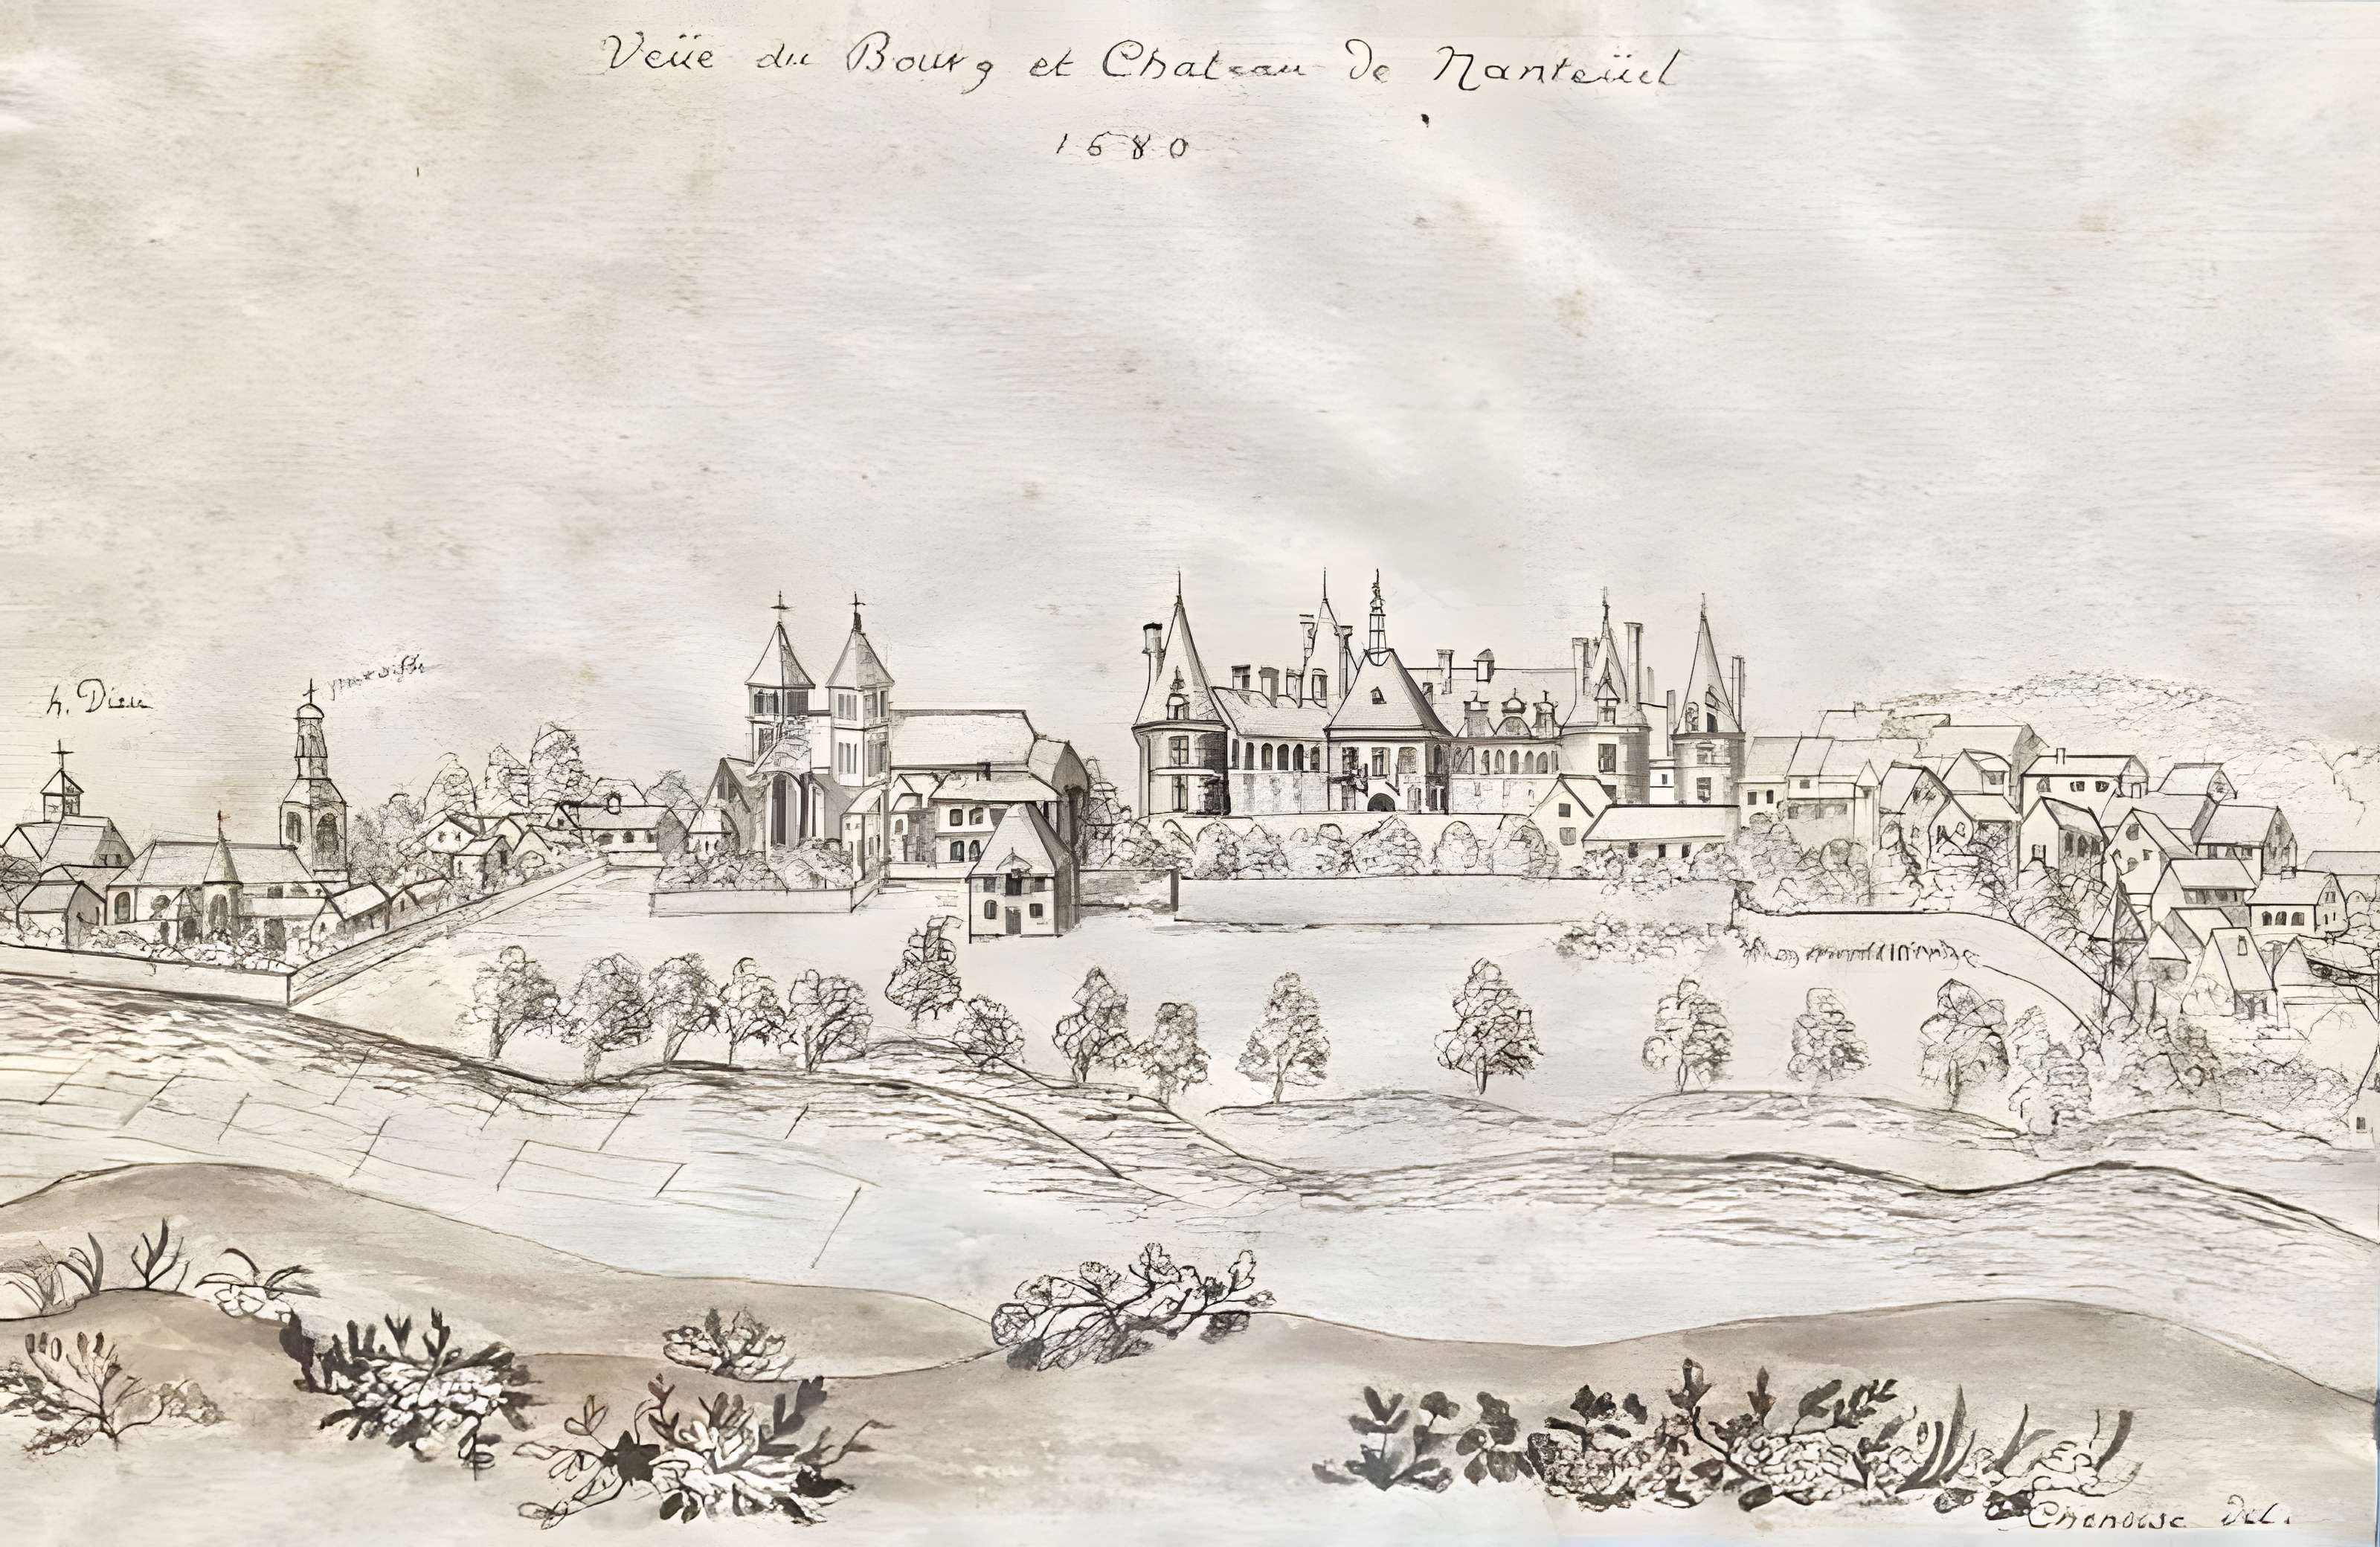 Veüe du Bourg et Chateau De Nanteüil
1680
h. Dieu
Chanoise Del.